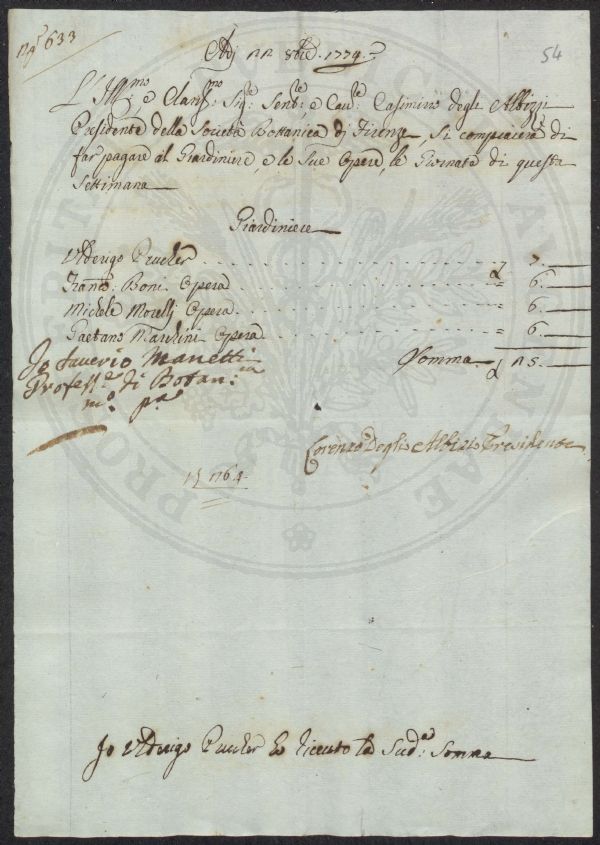 N° 633
54
Adj 22 8bre 1774
L'Ill:mo e Clariss:mo Sig:e Sen:te e Cav:e Casimirro degli Albizzi
Presidente della Società Bottanica di Firenze, si compiacerà di
far pagare al Giardiniere, e le Sue Opere, le Giornate di questa
Settimana
Giardiniere
Ulderigo Prucker 7.
Franc:o Boni Opera = 6.
Michele Morelli Opera = 6.
Gaetano Nardini Opera = 6.
Somma 25.
Io Saverio Manetti
Profess:e di Botan:ca
m:o p:a
Lorenzo Degli Albizi Presidente
1764
Io Ulderigo Prucker ho riceuto la Sud:a Somma
PROPRIETAS PUBLICA